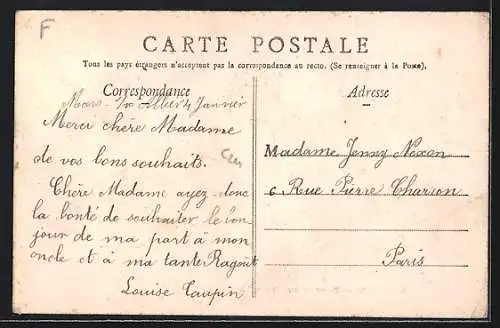 F
CARTE POSTALE
Tous les pays étrangers n'acceptent pas la correspondance au recto. (Se renseigner à la Poste).
Correspondance
Adresse
4 Janvier
Merci chère Madame
de vos bons souhaits.
Chère Madame ayez donc
la bonté de souhaiter le bon
jour de ma part à mon
oncle et à ma tante Ragout
Louise Caupin
Madame Jenny Noxon
6 Rue Pierre Charron
Paris